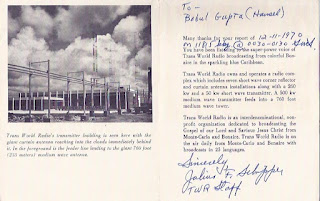 Trans World Radio's transmitter building is seen here with the
giant curtain antenna reaching into the clouds immediately behind
it. In the foreground is the feeder line leading to the giant 760 foot
(235 meters) medium wave antenna.
To -
Babul Gupta (Hansel)
Many thanks for your report of 12-11-1970
0030-0130
You have been listening to the super power voice of
Trans World Radio broadcasting from colorful Bonaire
in the sparkling blue Caribbean.
Trans World Radio owns and operates a radio complex
which includes seven short wave corner reflector
and curtain antenna installations along with a 260
kw and a 50 kw short wave transmitter. A 500 kw
medium wave transmitter feeds into a 760 foot
medium wave tower.
Trans World Radio is an interdenominational, non-
profit organization dedicated to broadcasting the
Gospel of our Lord and Saviour Jesus Christ from
Monte-Carlo and Bonaire. Trans World Radio is
on the air daily from Monte-Carlo and Bonaire with
broadcasts in 25 languages.
Sincerely
TWR Staff